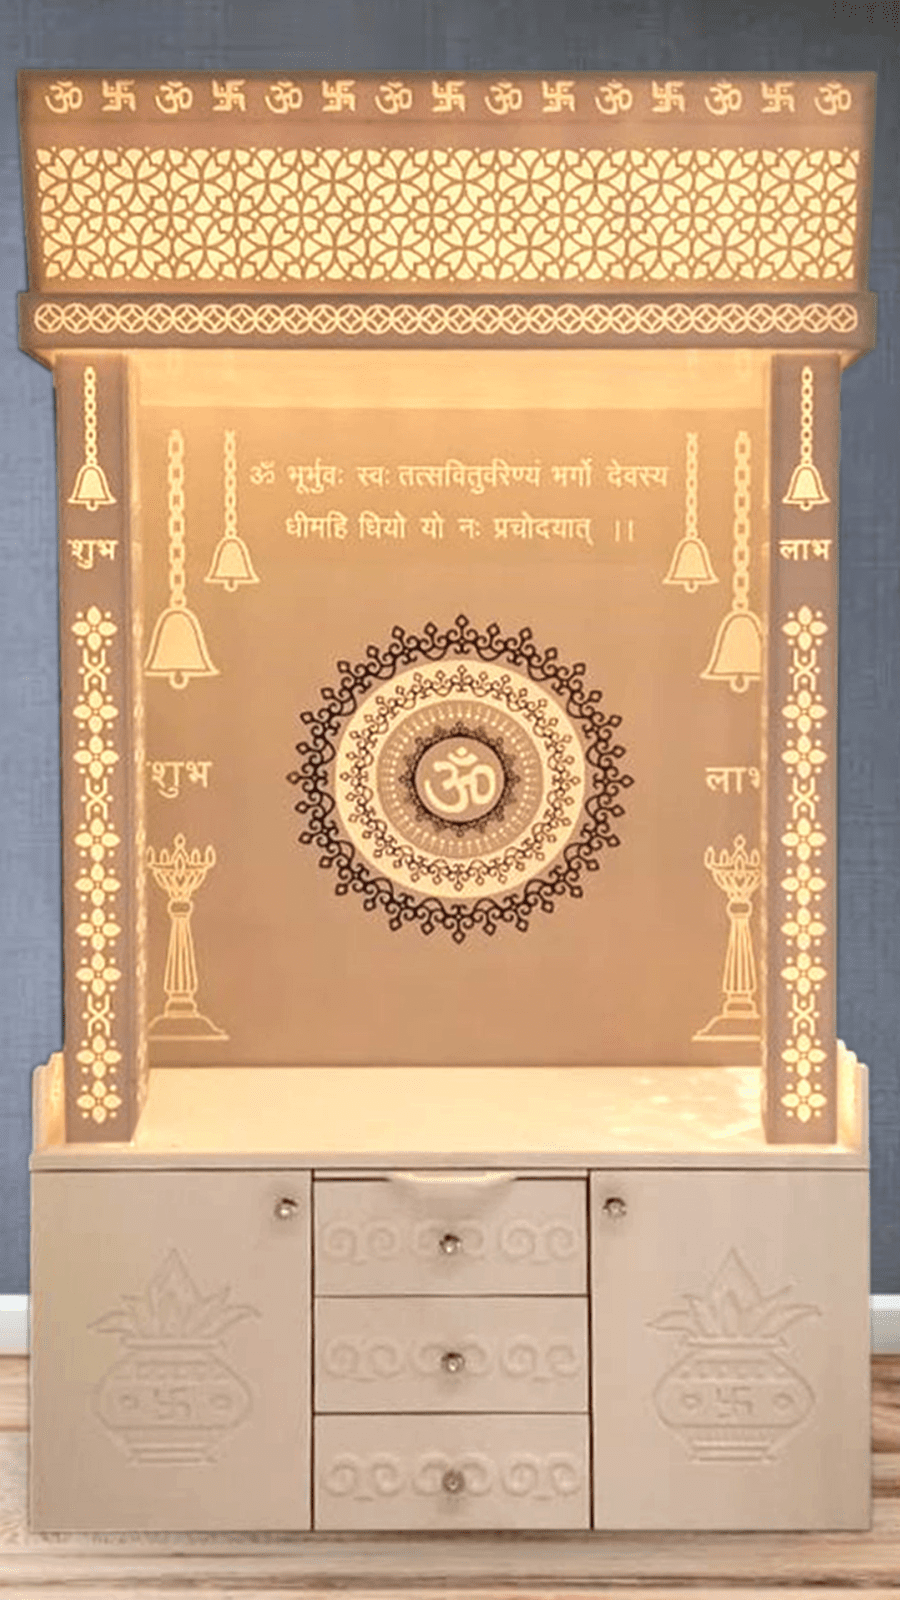 ॐ 卐 ॐ 卐 ॐ 卐 ॐ 卐 ॐ 卐 ॐ 卐 ॐ 卐 ॐ
ॐ भूर्भुवः स्वः तत्सवितुर्वरेण्यं भर्गो देवस्य
धीमहि धियो यो नः प्रचोदयात् ।।
शुभ लाभ
ॐ
शुभ लाभ
卐 卐